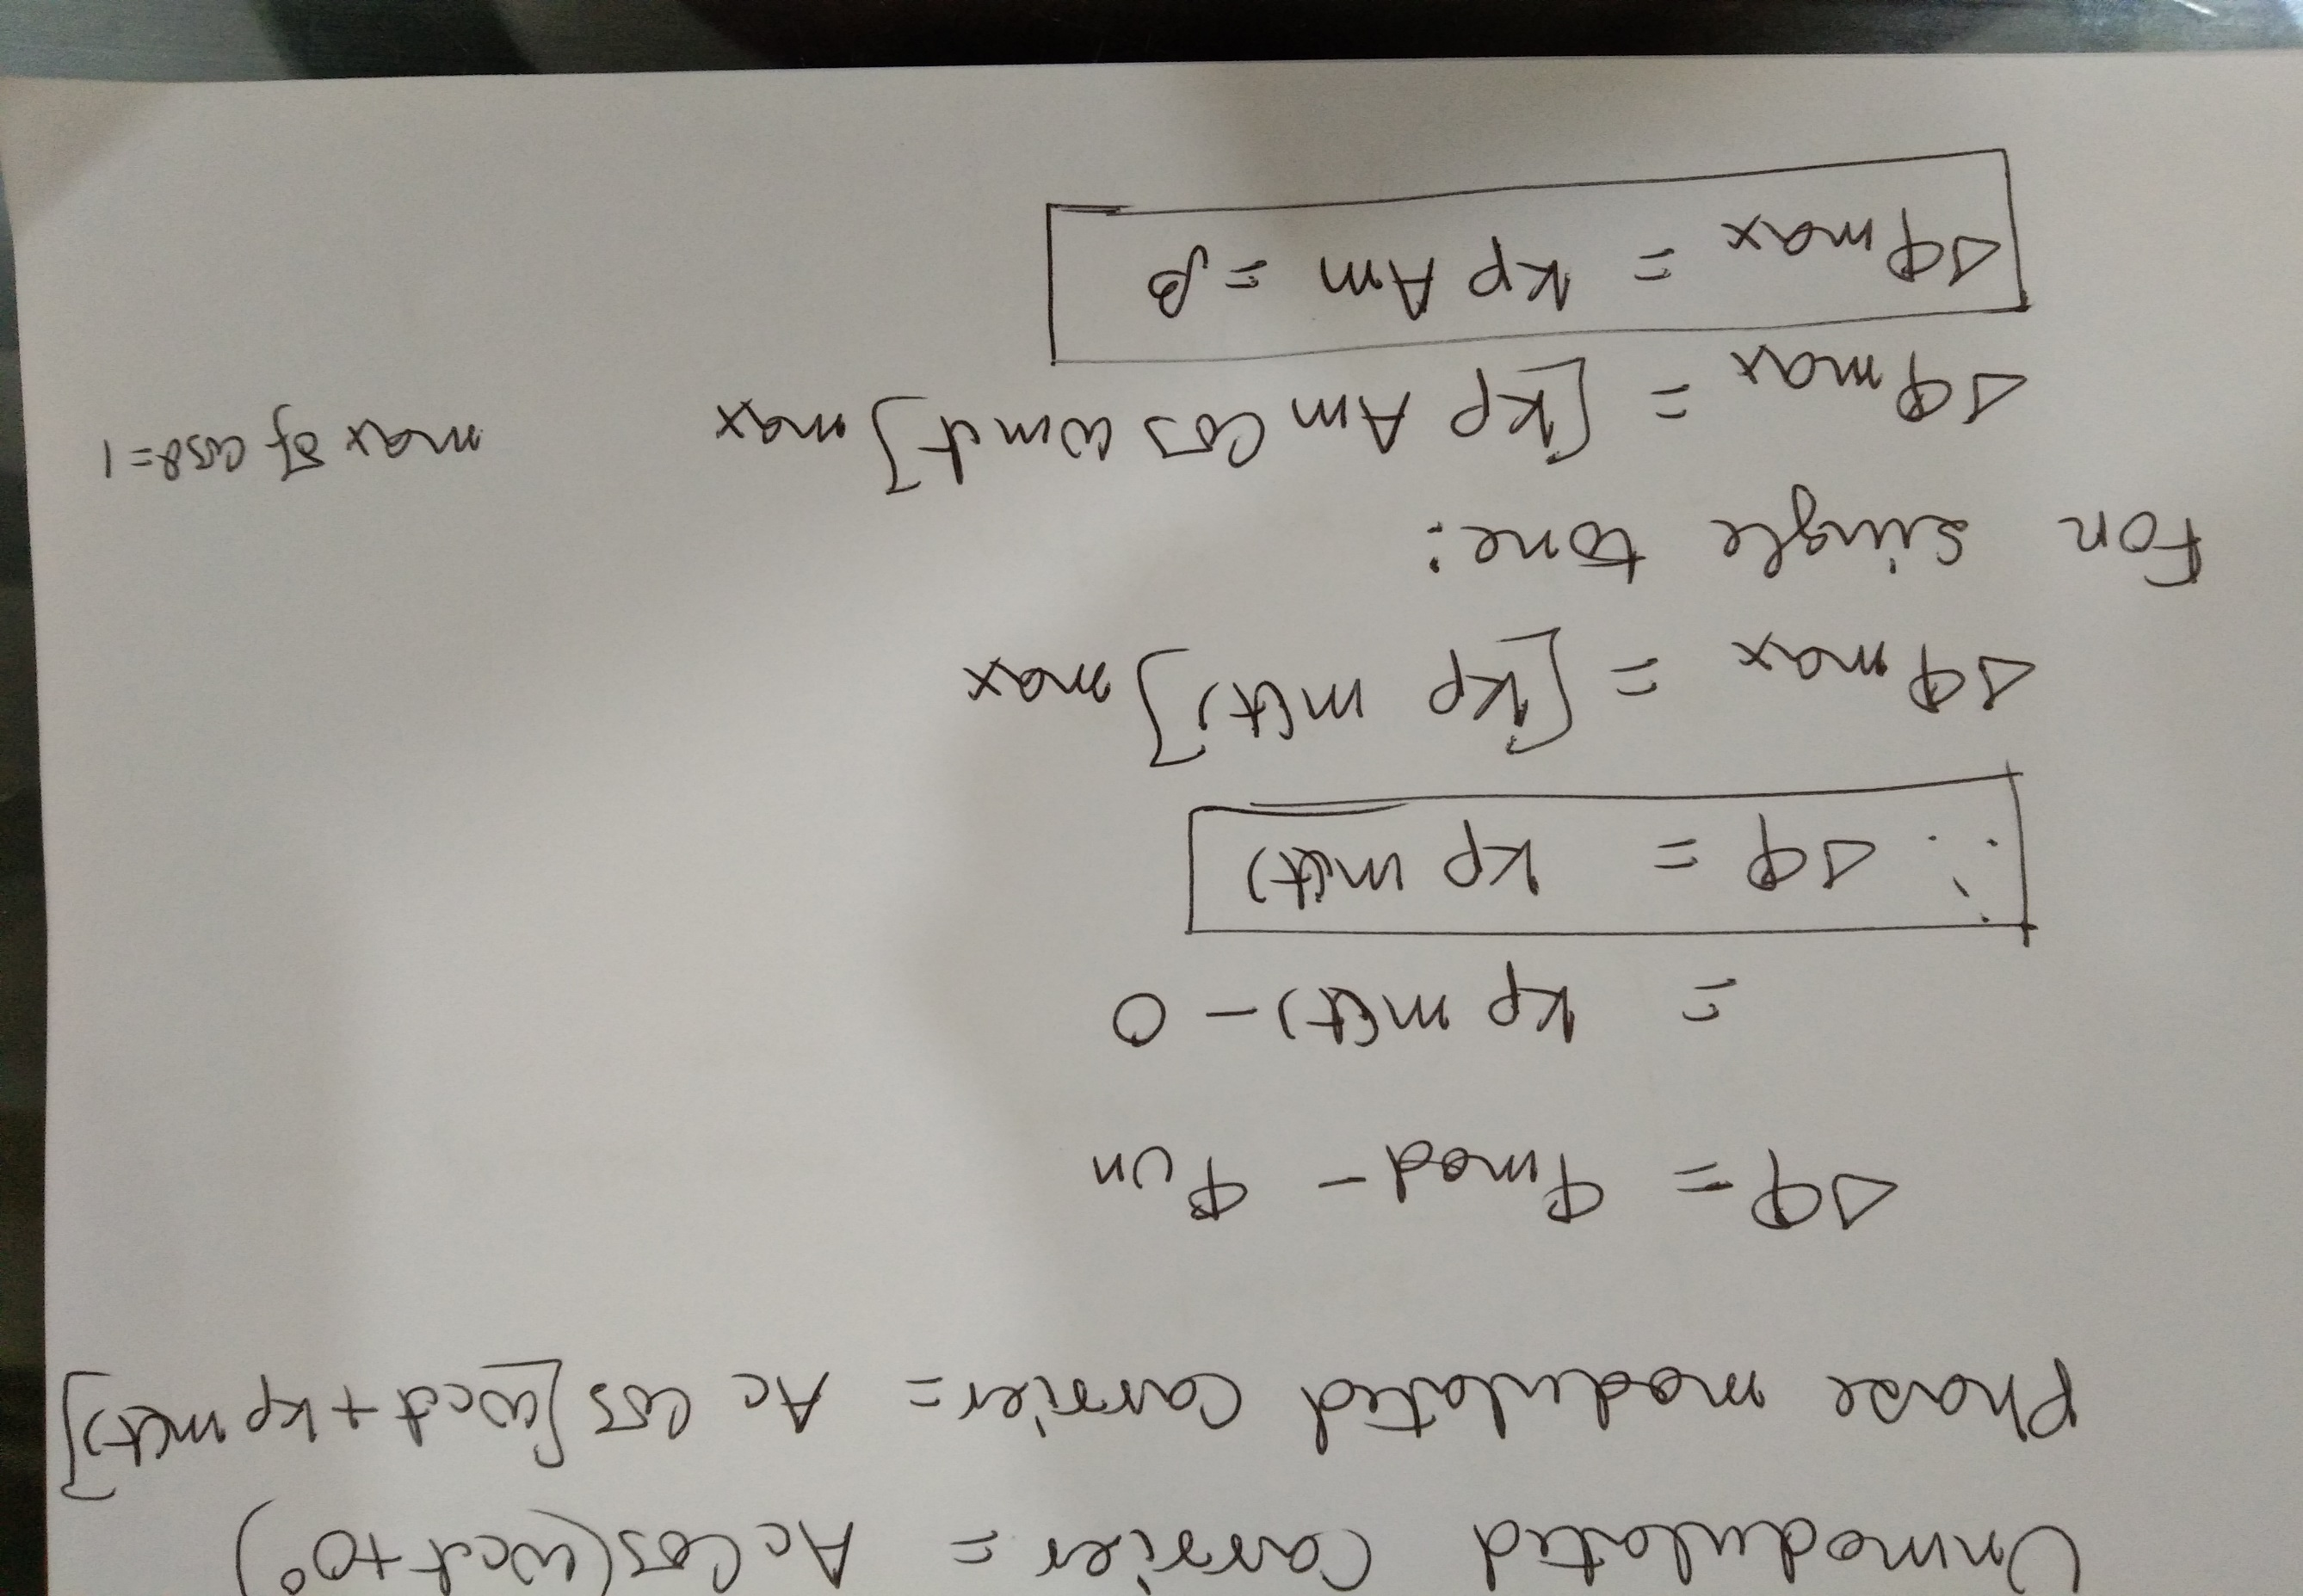 Unmodulated Carrier = Ac Cos(ωct+0°)
Phase modulated Carrier = Ac Cos[ωct+kp m(t)]
Δφ = φmod - φun
= kp m(t) - 0
∴ Δφ = kp m(t)
Δφmax = [kp m(t)]max
For single tone:
Δφmax = [kp Am Cos ωmt]max max of cosθ=1
Δφmax = kp Am = β